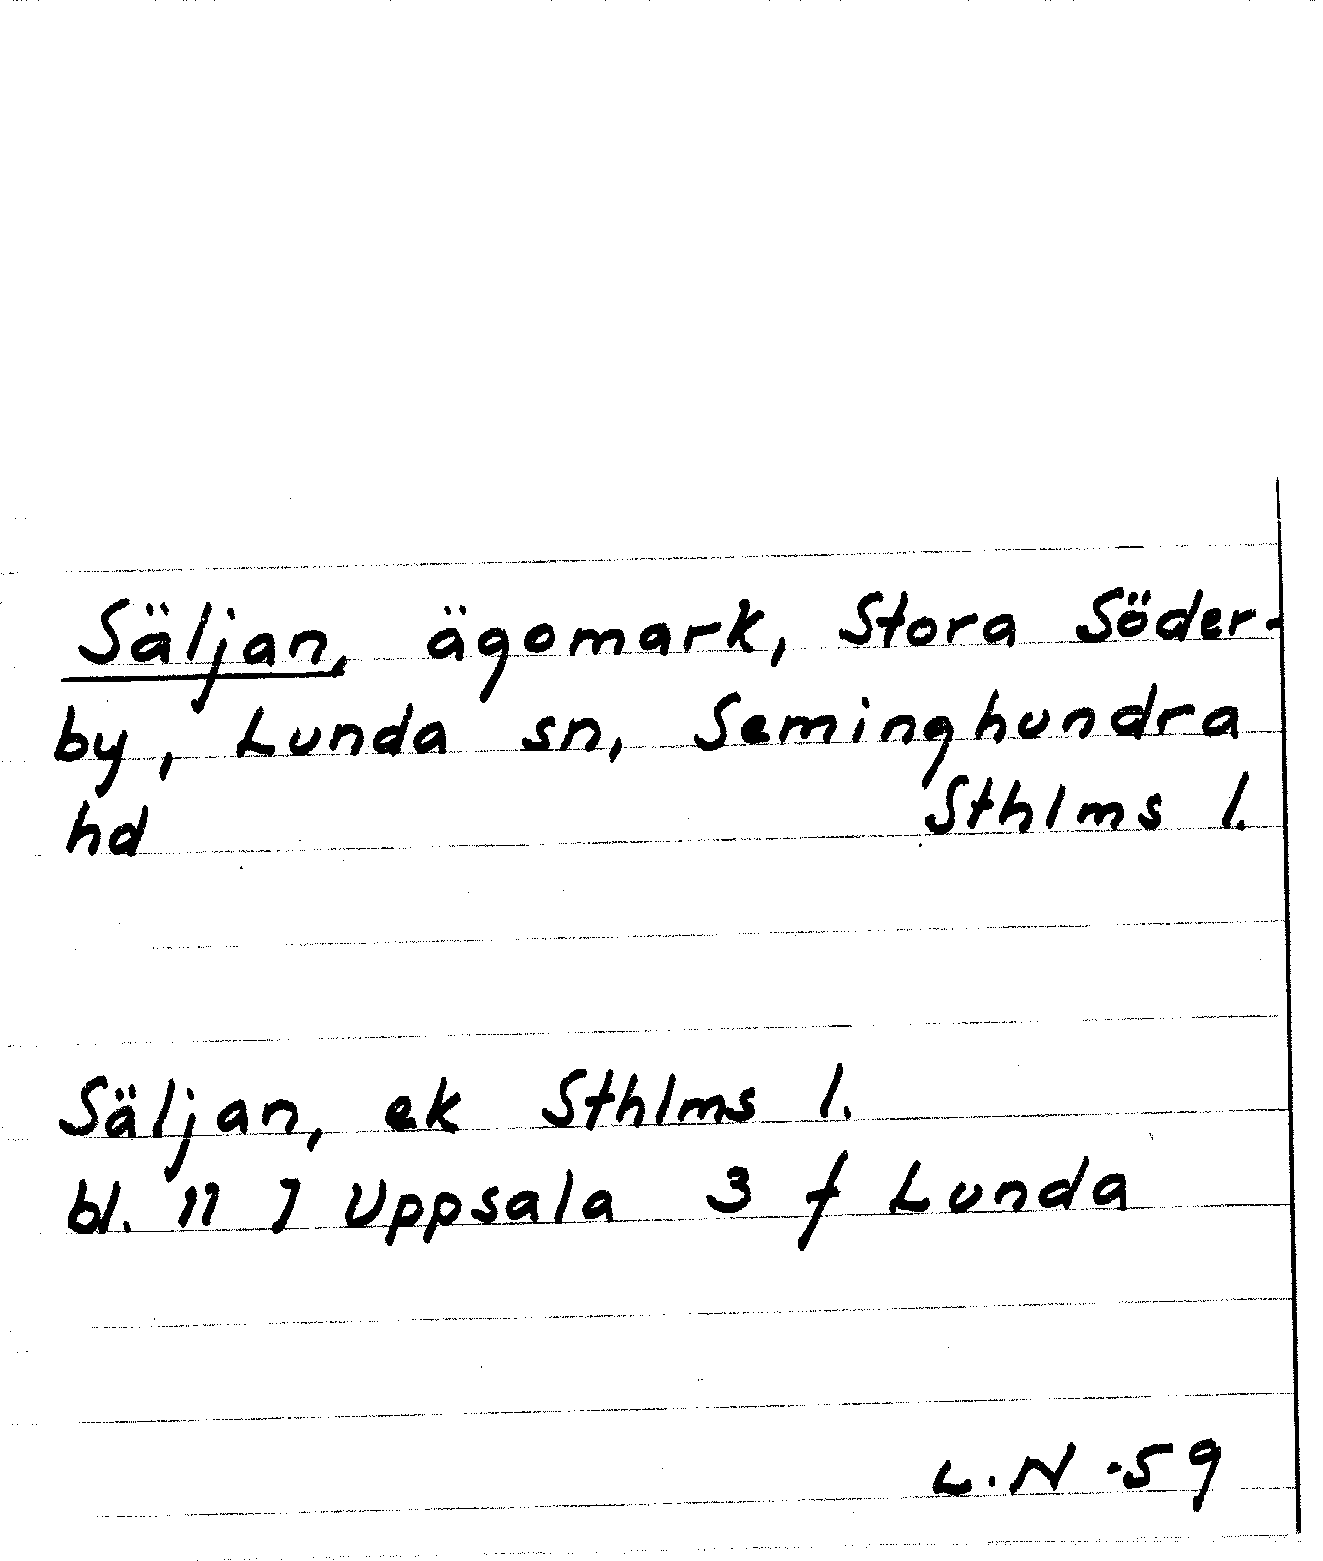 Säljan, ägomark, Stora Söder-
by, Lunda sn, Seminghundra
hd Sthlms l.
Säljan, ek Sthlms l.
bl. 11 I Uppsala 3 f Lunda
L.N -59